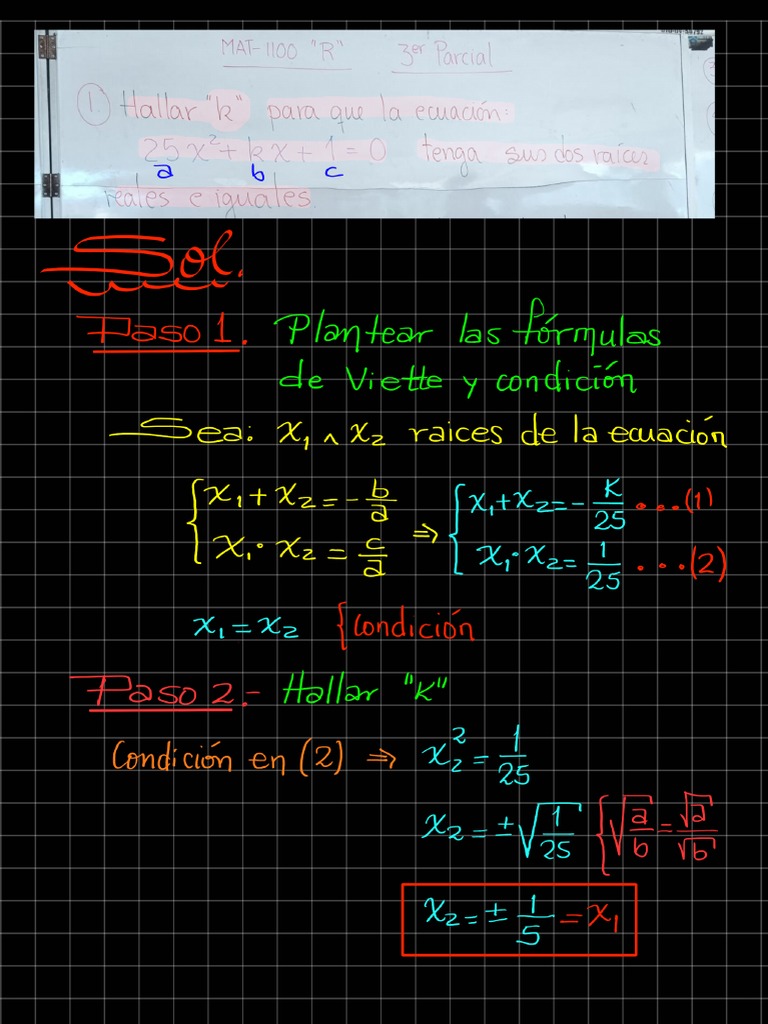 MAT-1100 "R" 3er Parcial
1. Hallar "k" para que la ecuación:
25x² + kx + 1 = 0 tenga sus dos raíces
a b c
reales e iguales.
Sol.
Paso 1. Plantear las fórmulas
de Viette y condición
Sea: x₁ ∧ x₂ raices de la ecuación
{ x₁ + x₂ = - b/a ⇒ { x₁ + x₂ = - K/25 ....(1)
x₁ · x₂ = c/a x₁ · x₂ = 1/25 ....(2)
x₁ = x₂ {condición
Paso 2.- Hallar "K"
Condición en (2) ⇒ x₂² = 1/25
x₂ = ± √(1/25) { √(a/b) = √a/√b
x₂ = ± 1/5 = x₁